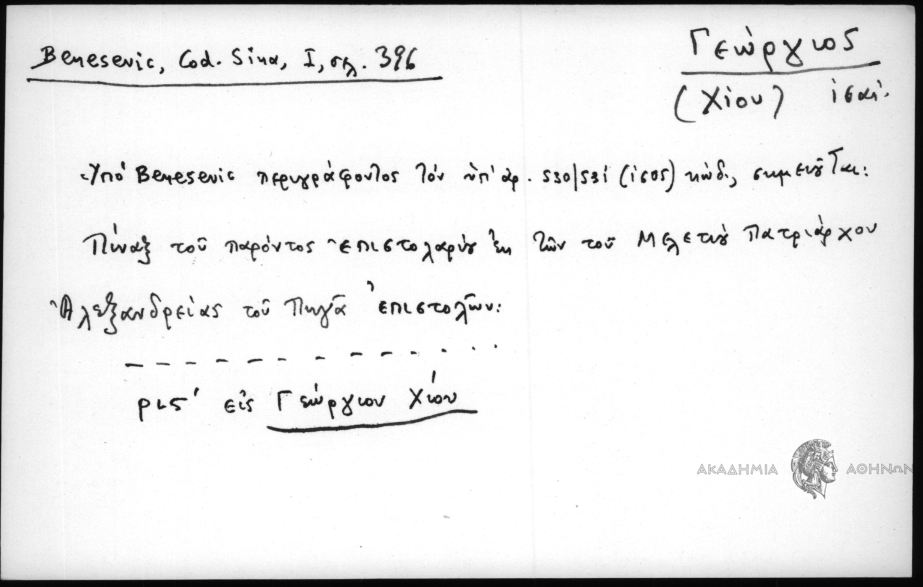 Benesevic, Cod. Sina, I, σελ. 396
Γεώργιος
(Χίου) ιςαι.
Ὑπό Benesevic περιγράφοντος τόν ὑπ' ἀρ. 530/531 (1605) κώδ., σημειοῦται:
Πίναξ τοῦ παρόντος ἐπιστολαρίου ἐκ τῶν τοῦ Μελετίου Πατριάρχου
Ἀλεξανδρείας τοῦ Πηγᾶ ἐπιστολῶν:
ρις' εἰς Γεώργιον Χίου
ΑΚΑΔΗΜΙΑ ΑΘΗΝΩΝ